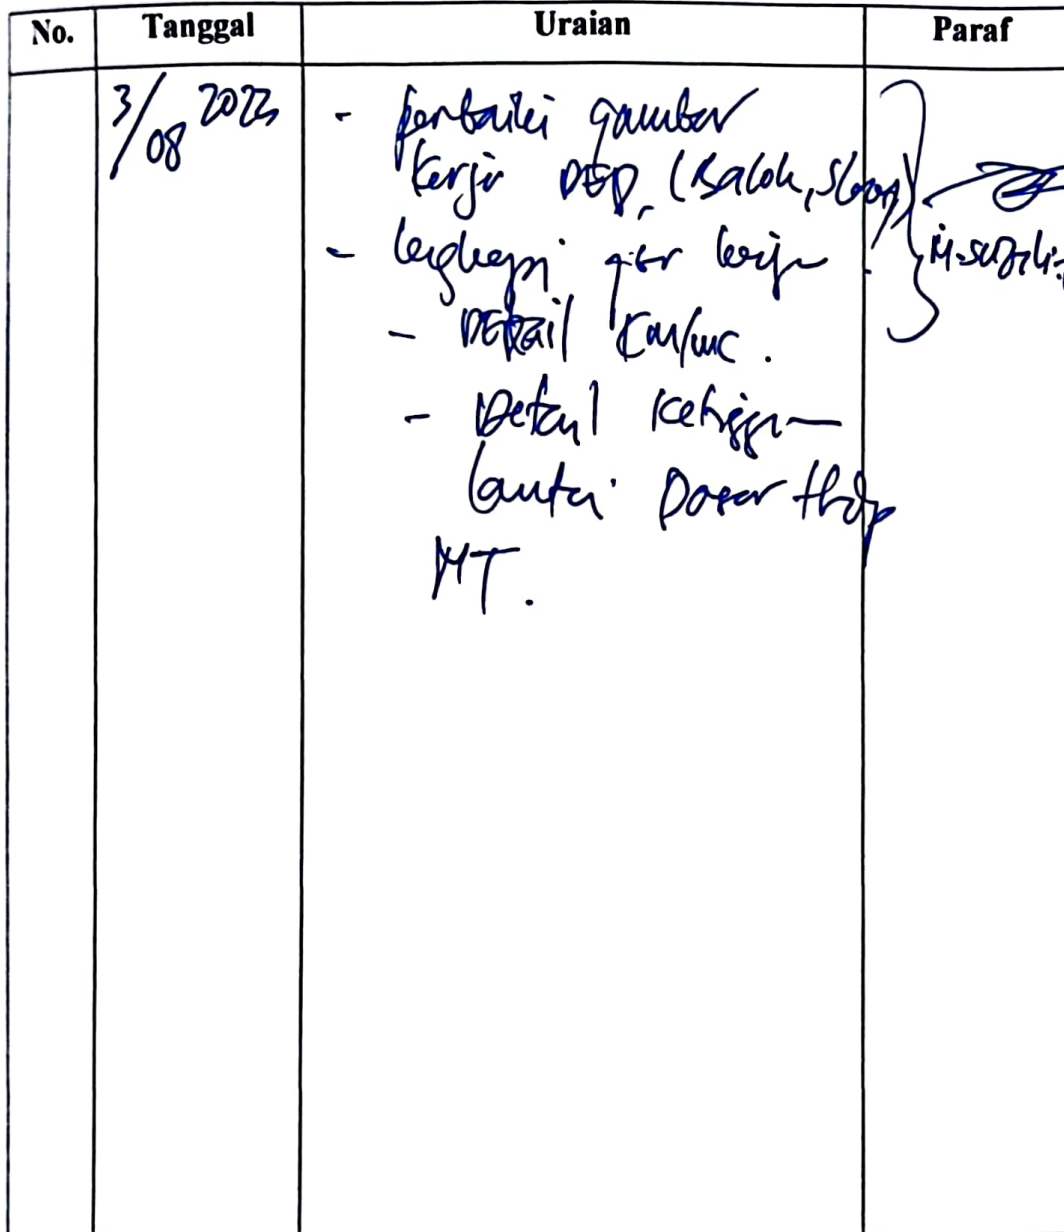 No. Tanggal Uraian Paraf
3/08 2023 - perbaiki gambar
kerja DED, (Balok, Sloof)
- lengkapi gbr kerja
- Detail Km/wc.
- Detail Ketinggian
lantai Dasar thdp
MT.